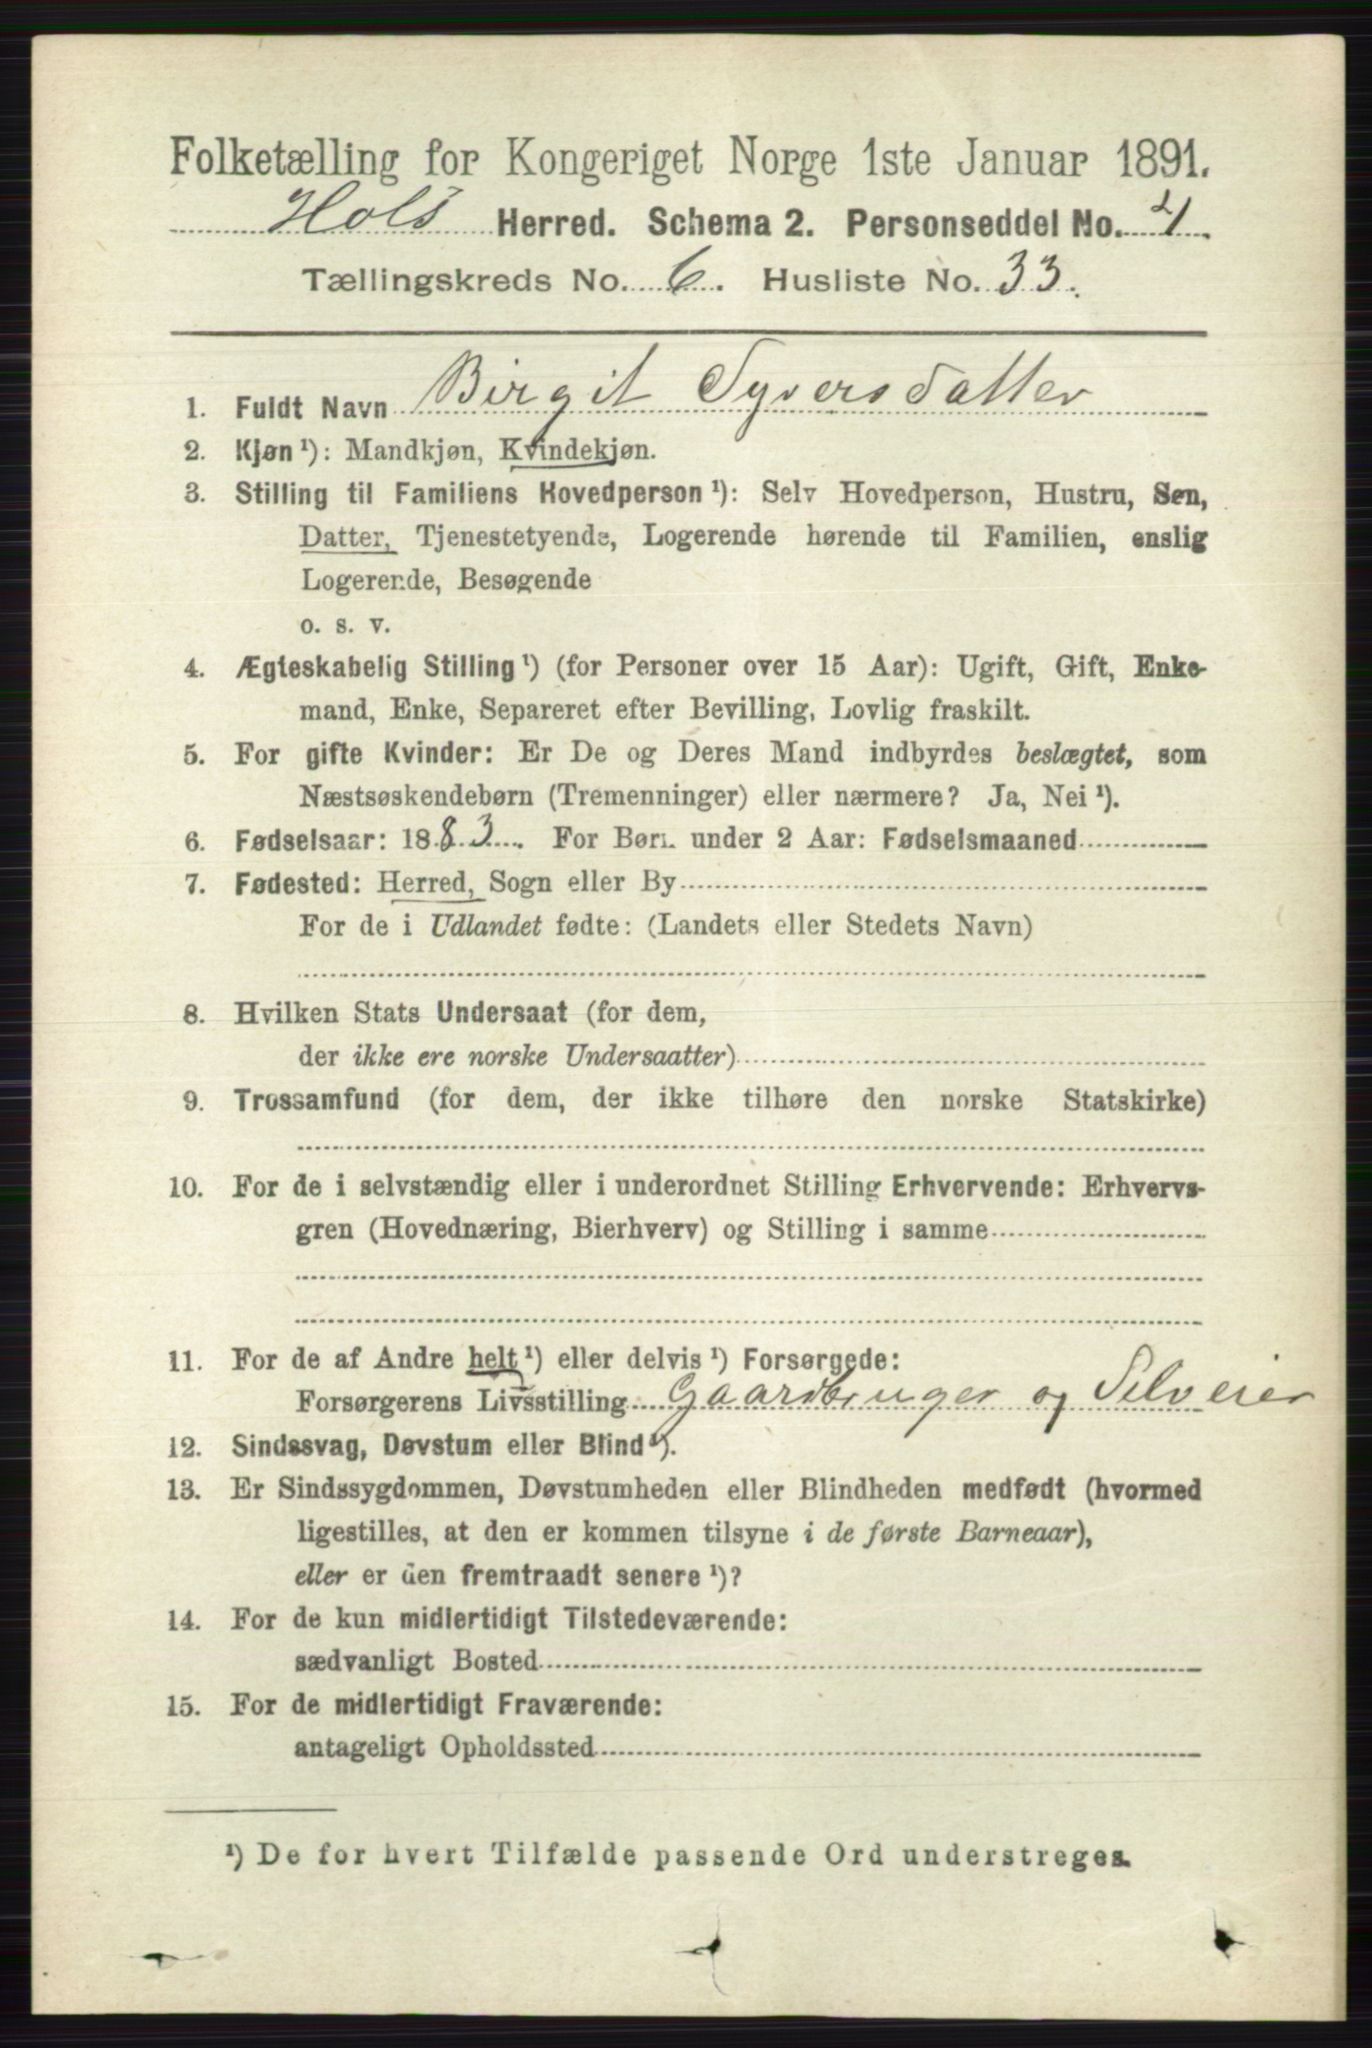 Folketælling for Kongeriget Norge 1ste Januar 1891.
Hols Herred. Schema 2. Personseddel No. 4.
Tællingskreds No. 6. Husliste No. 33.
1. Fuldt Navn Birgit Syversdatter
2. Kjøn ¹): Mandkjøn, Kvindekjøn.
3. Stilling til Familiens Hovedperson ¹): Selv Hovedperson, Hustru, Søn,
Datter, Tjenestetyende, Logerende hørende til Familien, enslig
Logerende, Besøgende
o. s. v.
4. Ægteskabelig Stilling ¹) (for Personer over 15 Aar): Ugift, Gift, Enke-
mand, Enke, Separeret efter Bevilling, Lovlig fraskilt.
5. For gifte Kvinder: Er De og Deres Mand indbyrdes beslægtet, som
Næstsøskendebørn (Tremenninger) eller nærmere? Ja, Nei ¹).
6. Fødselsaar: 1883. For Børn under 2 Aar: Fødselsmaaned
7. Fødested: Herred, Sogn eller By
For de i Udlandet fødte: (Landets eller Stedets Navn)
8. Hvilken Stats Undersaat (for dem,
der ikke ere norske Undersaatter)
9. Trossamfund (for dem, der ikke tilhøre den norske Statskirke)
10. For de i selvstændig eller i underordnet Stilling Erhvervende: Erhvervs-
gren (Hovednæring, Bierhverv) og Stilling i samme
11. For de af Andre helt ¹) eller delvis ¹) Forsørgede:
Forsørgerens Livsstilling Gaardbruger og Selveier
12. Sindssvag, Døvstum eller Blind ¹).
13. Er Sindssygdommen, Døvstumheden eller Blindheden medfødt (hvormed
ligestilles, at den er kommen tilsyne i de første Barneaar),
eller er den fremtraadt senere ¹)?
14. For de kun midlertidigt Tilstedeværende:
sædvanligt Bosted
15. For de midlertidigt Fraværende:
antageligt Opholdssted
¹) De for hvert Tilfælde passende Ord understreges.